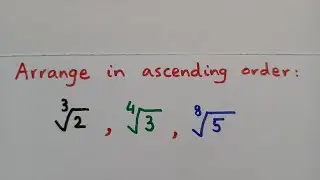 Arrange in ascending order:
∛2 , ∜3 , ⁸√5